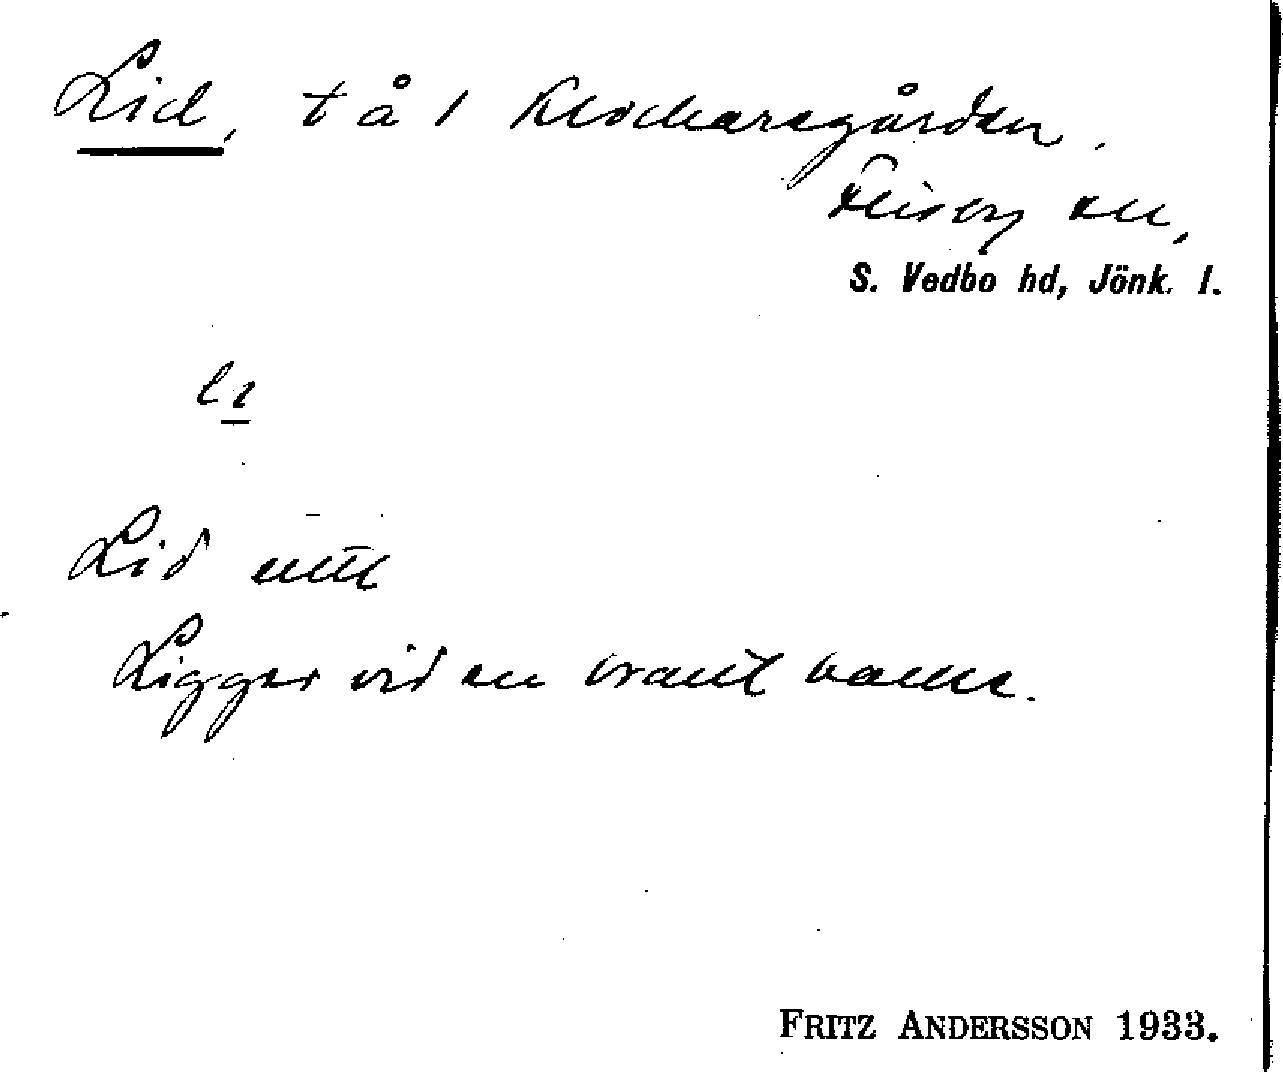 Lid, t å 1 Klockaregården.
Flisby sn,
S. Vedbo hd, Jönk. l.
li
Lid
Ligger vid en brant backe.
FRITZ ANDERSSON 1933.